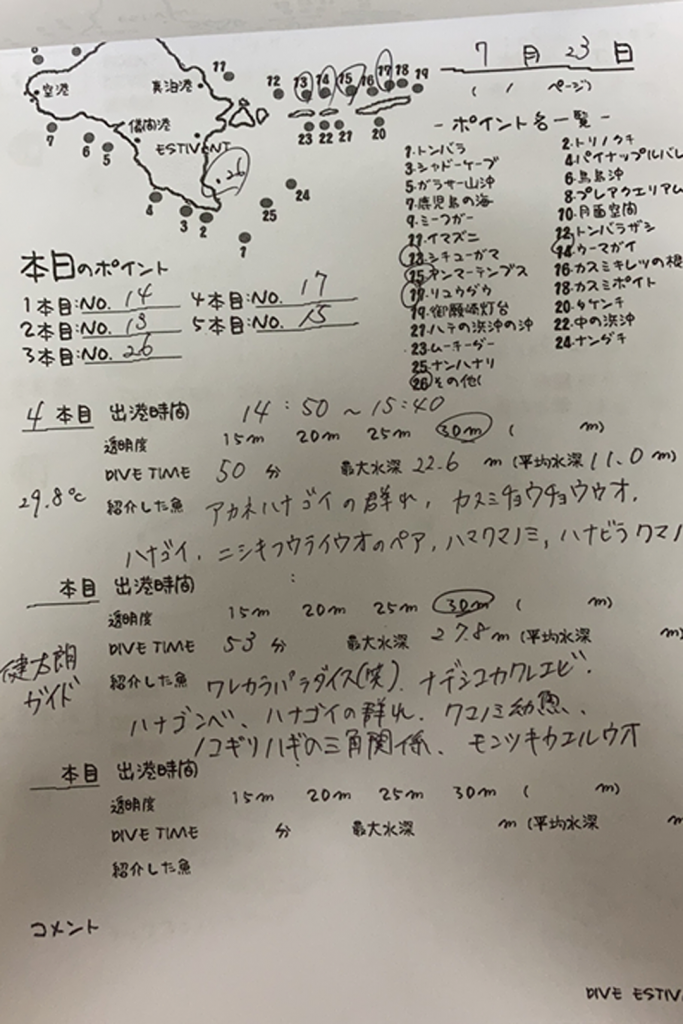 7月23日
( 1 ページ)
空港
真泊港
儀間港
ESTIVANT
11 12 13 14 15 16 17 18 19
23 22 21 20
7 6 5
26
24
25
4 3 2
1
- ポイント名一覧 -
1.トンバラ 2.トリノクチ
3.シャドーケーブ 4.パイナップルバレ
5.ガラサー山沖 6.鳥島沖
7.鹿児島の海 8.プレアクエリアム
9.ミーフガー 10.月面空間
11.イマズニ 12.トンバラザシ
13.シチューガマ 14.ウーマガイ
15.ヤンマーテンプス 16.カスミキレツの根
17.リュウグウ 18.カスミポイント
19.御願崎灯台 20.タケンチ
21.ハテの浜沖の沖 22.中の浜沖
23.ムーチーグー 24.ナングチ
25.ナンハナリ
26.その他(
本日のポイント
1本目:NO. 14 4本目:NO. 17
2本目:NO. 13 5本目:NO. 15
3本目:NO. 26
4 本目 出港時間 14:50〜15:40
透明度 15m 20m 25m 30m ( m)
DIVE TIME 50 分 最大水深 22.6 m (平均水深 11.0 m)
29.8℃ 紹介した魚 アカネハナゴイの群れ, カスミチョウチョウウオ,
ハナゴイ, ニシキフウライウオのペア, ハマクマノミ, ハナビラクマノ
本目 出港時間 :
透明度 15m 20m 25m 30m ( m)
DIVE TIME 53 分 最大水深 27.8 m (平均水深 m)
健太朗
ガイド
紹介した魚 ワレカラパラダイス(笑)、ナデシコカクレエビ、
ハナゴンベ、ハナゴイの群れ、クマノミ幼魚、
ノコギリハギの三角関係、モンツキカエルウオ
本目 出港時間
透明度 15m 20m 25m 30m ( m)
DIVE TIME 分 最大水深 m (平均水深 m
紹介した魚
コメント
DIVE ESTIV